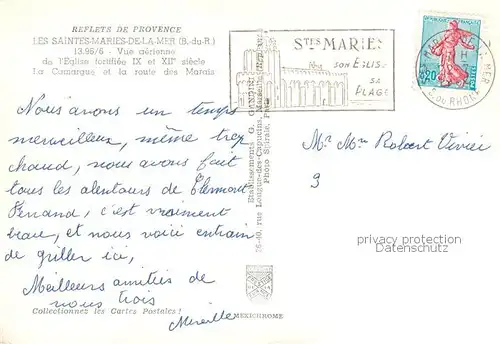 REFLETS DE PROVENCE
LES SAINTES-MARIES-DE-LA-MER (B.-du-R.)
13.96/6 - Vue aérienne
de l'Eglise fortifiée IX et XIIe siècle
La Camargue et la route des Marais
Nous avons un temps
merveilleux, même trop
chaud, nous avons fait
tous les alentours de Clermont
Ferrand, c'est vraiment
beau, et nous voici entrain
de griller ici,
Meilleurs amitiés de
nous trois
Mireille
Collectionnez les Cartes Postales !
MEXICHROME
Etablissements G.
rue Longue-des-Capucins, Marseille
Photo Spirale, Paris
STES MARIES
SON ÉGLISE
SA
PLAGE
MER
DU RHONE
0,20
Mr Mme Robert
9
privacy protection
watermark